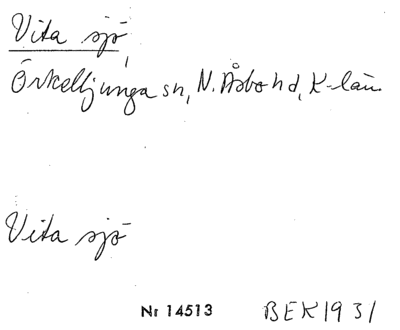 Vita sjö
Örkelljunga sn, N. Åsbo hd, K-län
Vita sjö
Nr 14513 BEK 1931